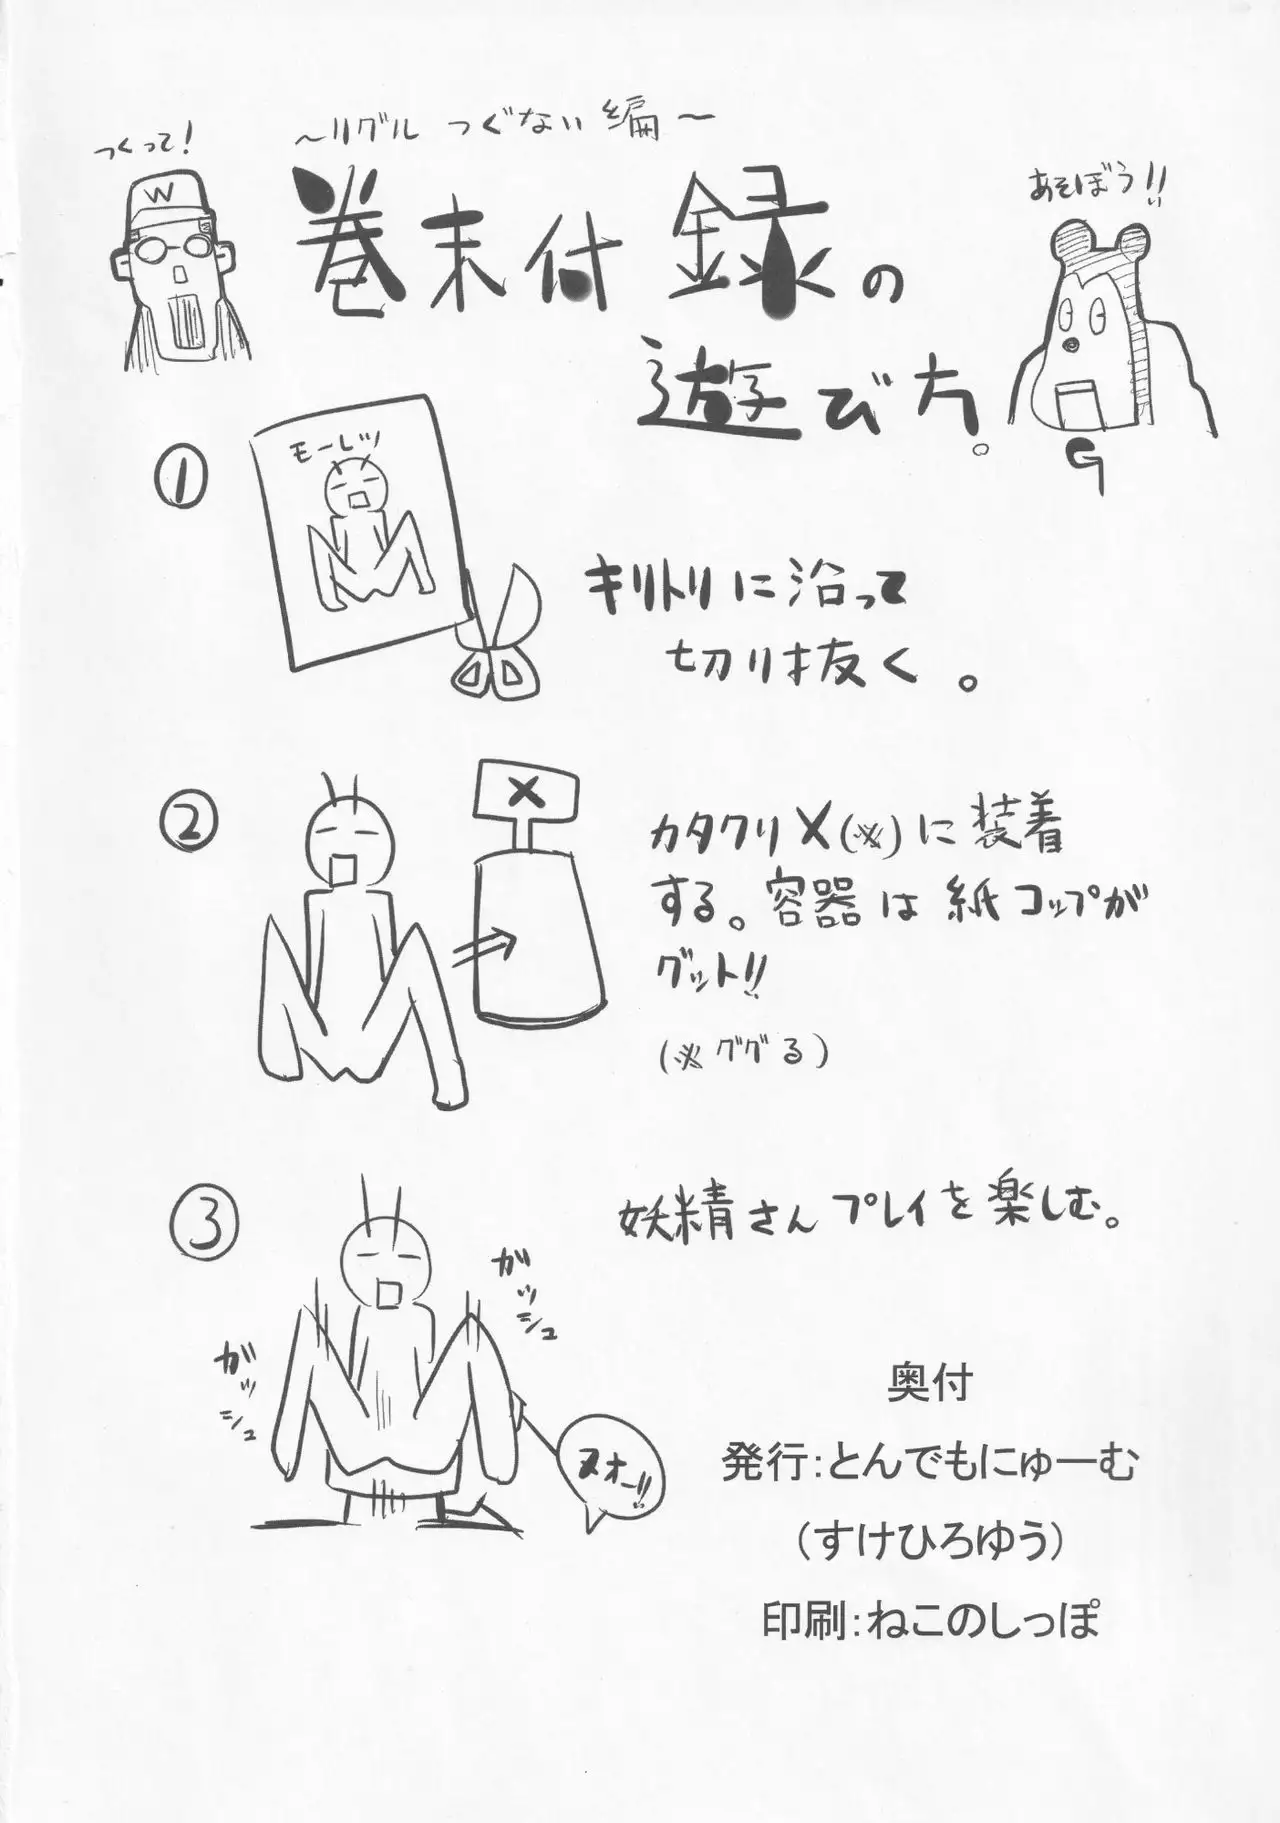 ～リグル つぐない編～
つくって!
巻末付録の
遊び方。
あそぼう!!
W
G
①
モーレツ
キリトリに沿って
切り抜く。
②
X
カタクリX(※)に装着
する。容器は紙コップが
グット!!
(※ググる)
③
妖精さんプレイを楽しむ。
ガッシュ
ガッシュ
ヌオー!!
奥付
発行:とんでもにゅーむ
(すけひろゆう)
印刷:ねこのしっぽ